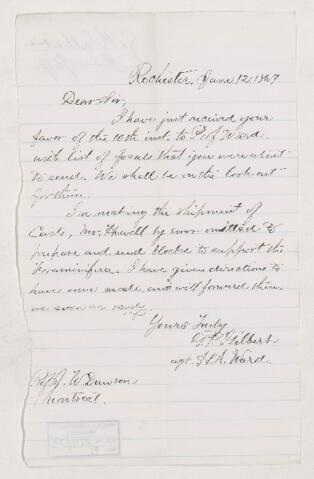 Rochester, June 12, 1869
Dear Sir,
I have just received your
favor of the 10th inst. to Prof Ward
with list of fossils that you were about
to send. We shall be on the lookout
for them.
In making the shipment of
Casts, Mr. Howell by error omitted to
prepare and send blocks to support the
Foraminifera. I have given directions to
have some made, and will forward them
as soon as ready.
Yours Truly
G. K. Gilbert
agt. H. A. Ward.
Prof J. W. Dawson
Montreal.